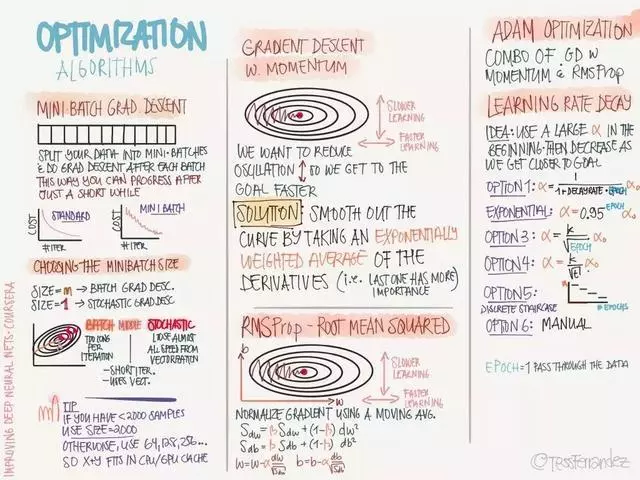 OPTIMIZATION
ALGORITHMS
MINI BATCH GRAD DESCENT
SPLIT YOUR DATA INTO MINI-BATCHES
& DO GRAD DESCENT AFTER EACH BATCH
THIS WAY YOU CAN PROGRESS AFTER
JUST A SHORT WHILE
COST
STANDARD
# ITER
COST
MINI BATCH
# ITER.
CHOOSING THE MINIBATCH SIZE
SIZE=m → BATCH GRAD DESC.
SIZE=1 → STOCHASTIC GRAD DESC
BATCH
TOO LONG
PER
ITERATION
MIDDLE
STOCHASTIC
LOOSE ALMOST
ALL SPEED FROM
VECTORIZATION
- SHORT ITER.
- USES VECT.
TIP
IF YOU HAVE < 2000 SAMPLES
USE SIZE=2000
OTHERWISE, USE 64, 128, 256...
SO X+Y FITS IN CPU/GPU CACHE
IMPROVING DEEP NEURAL NETS - COURSERA
GRADIENT DESCENT
W. MOMENTUM
SLOWER
LEARNING
FASTER
LEARNING
WE WANT TO REDUCE
OSCILLATION ↕ SO WE GET TO THE
GOAL FASTER
SOLUTION: SMOOTH OUT THE
CURVE BY TAKING AN EXPONENTIALLY
WEIGHTED AVERAGE OF THE
DERIVATIVES (i.e. LAST ONE HAS MORE)
IMPORTANCE
RMSProp - ROOT MEAN SQUARED
b
w
SLOWER
LEARNING
FASTER
LEARNING
NORMALIZE GRADIENT USING A MOVING AVG.
Sdw = β Sdw + (1-β) dw²
Sdb = β Sdb + (1-β) db²
w = w - α dw/√Sdw b = b - α db/√Sdb
ADAM OPTIMIZATION
COMBO OF GD W
MOMENTUM & RMSProp
LEARNING RATE DECAY
IDEA: USE A LARGE α IN THE
BEGINNING - THEN DECREASE AS
WE GET CLOSER TO GOAL
OPTION 1: α = 1/(1 + DECAYRATE · EPOCH) α₀
EXPONENTIAL: α = 0.95^EPOCH α₀
OPTION 3: α = k/√EPOCH α₀
OPTION 4: α = k/√t α₀
OPTION 5:
DISCRETE STAIRCASE
# EPOCHS
OPTION 6: MANUAL
EPOCH = 1 PASS THROUGH THE DATA
@TessFerrandez